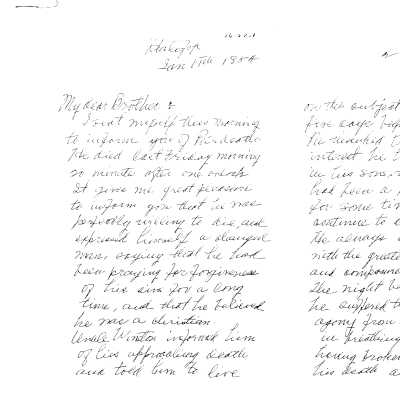 Jan 17th 1904
My dear Brother:
I seat myself this morning
to inform you of death
He died last Friday morning
20 minutes after one o'clock
It gives me great pleasure
to inform you that he was
perfectly willing to die, and
expressed himself a changed
man, saying that he had
been praying for forgiveness
of his sins for a long
time, and that he believed
he was a christian.
Uncle Winston informed him
of his approaching death
and told him to live
on the subject
five days
He thanked
interest he
in his son,
had been a
for some
continue to
He always
with the greatest
and compound
The night
he suffered
agony from
in breathing
having broken
his death